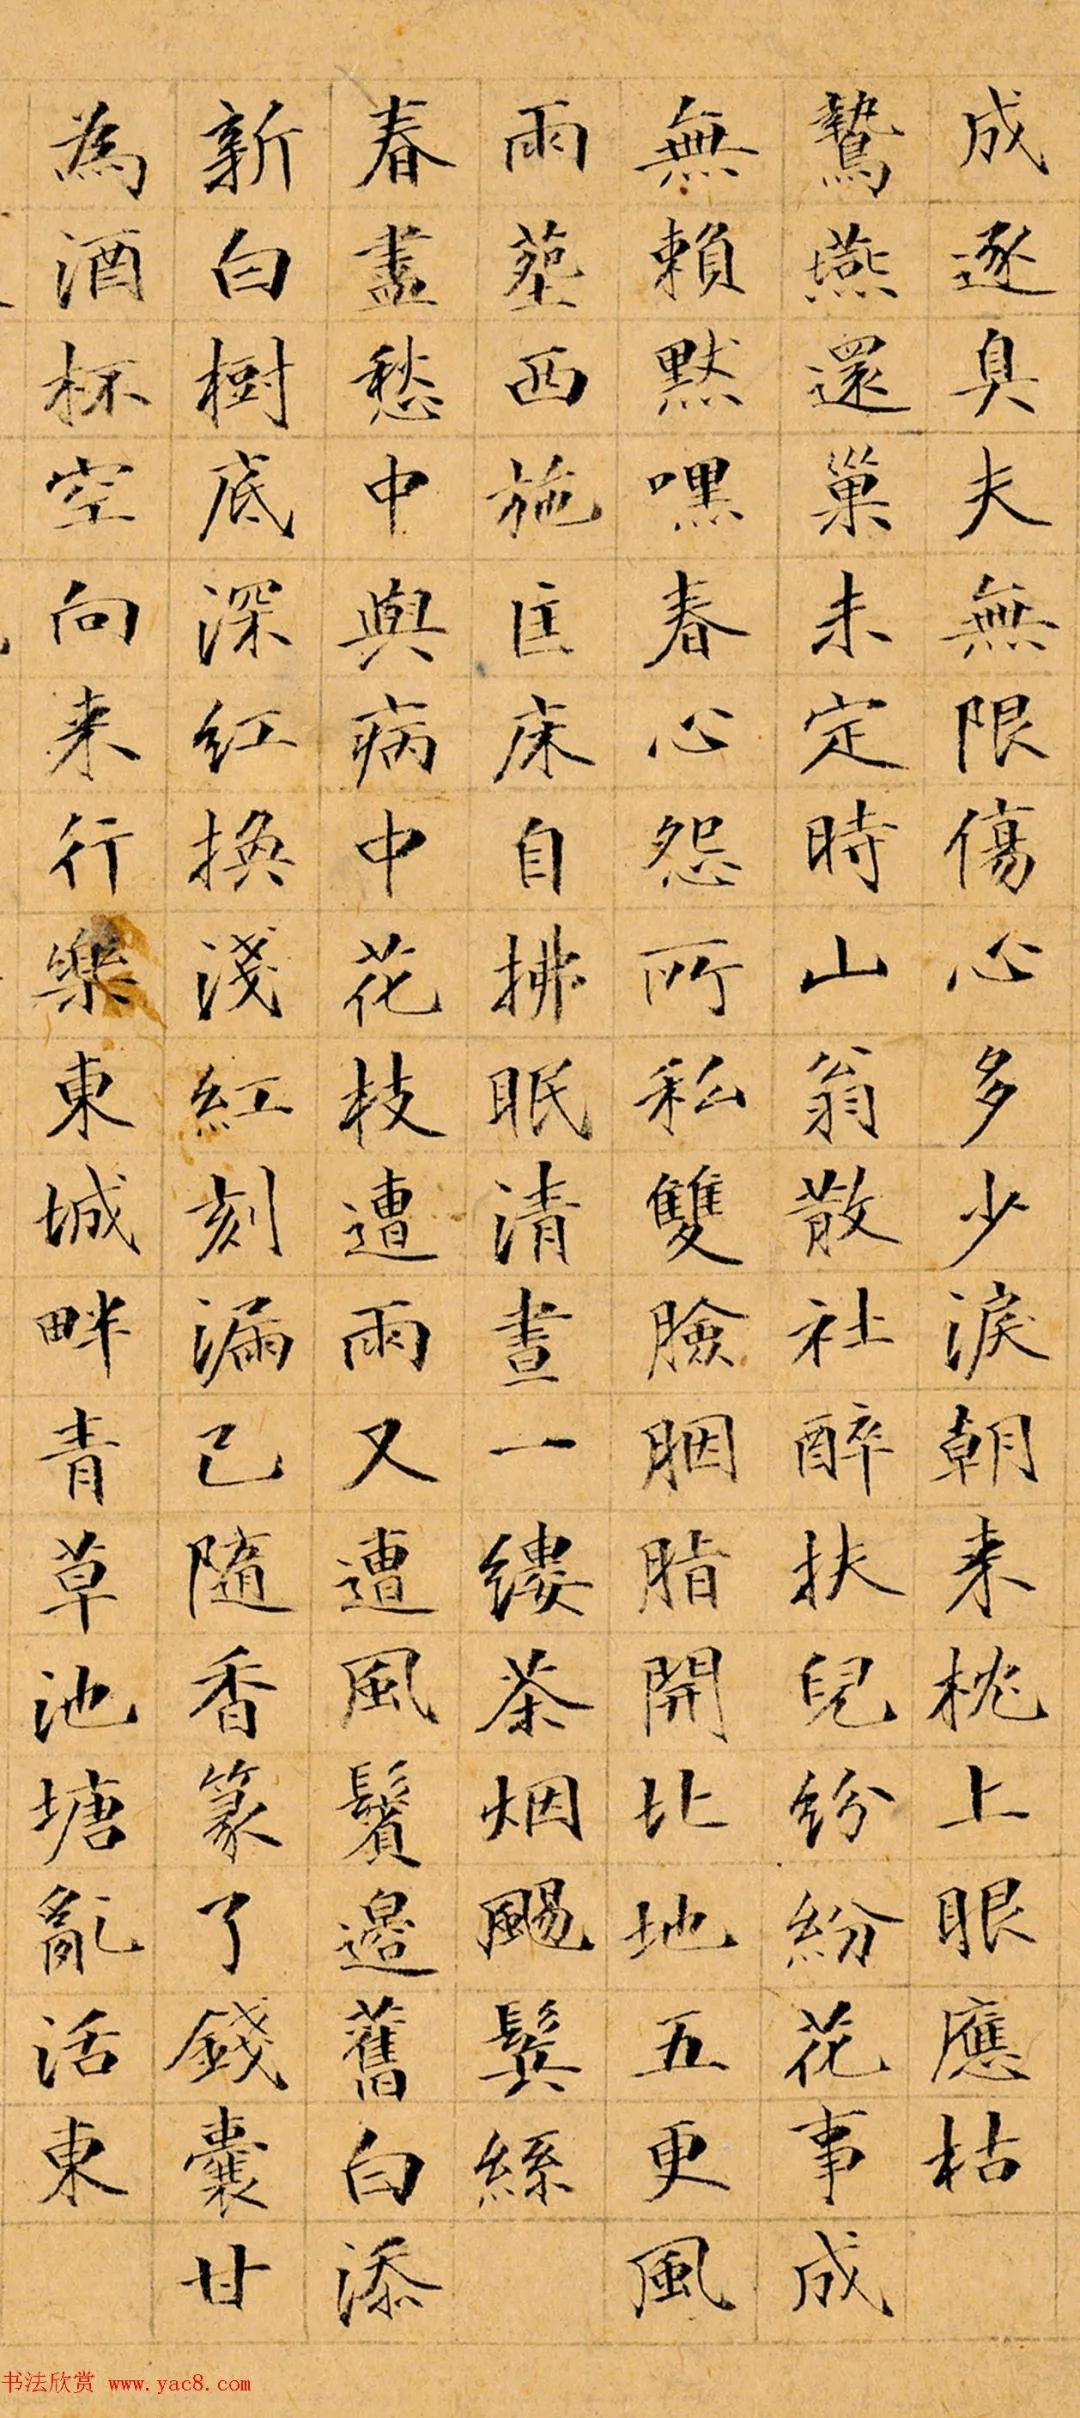 成逐臭夫無限傷心多少淚朝来枕上眼應枯
鷙燕還巢未定時山翁散社醉扶兒紛紛花事成
無賴默嘿春心怨所私雙臉胭脂開北地五更風
雨塟西施匡床自拂眠清晝一縷茶烟颺鬂絲
春盡愁中與病中花枝遭雨又遭風鬢邊舊白添
新白樹底深紅換淺紅刻漏已隨香篆了錢囊甘
為酒杯空向来行樂東城畔青草池塘亂活東
书法欣赏 www.yac8.com